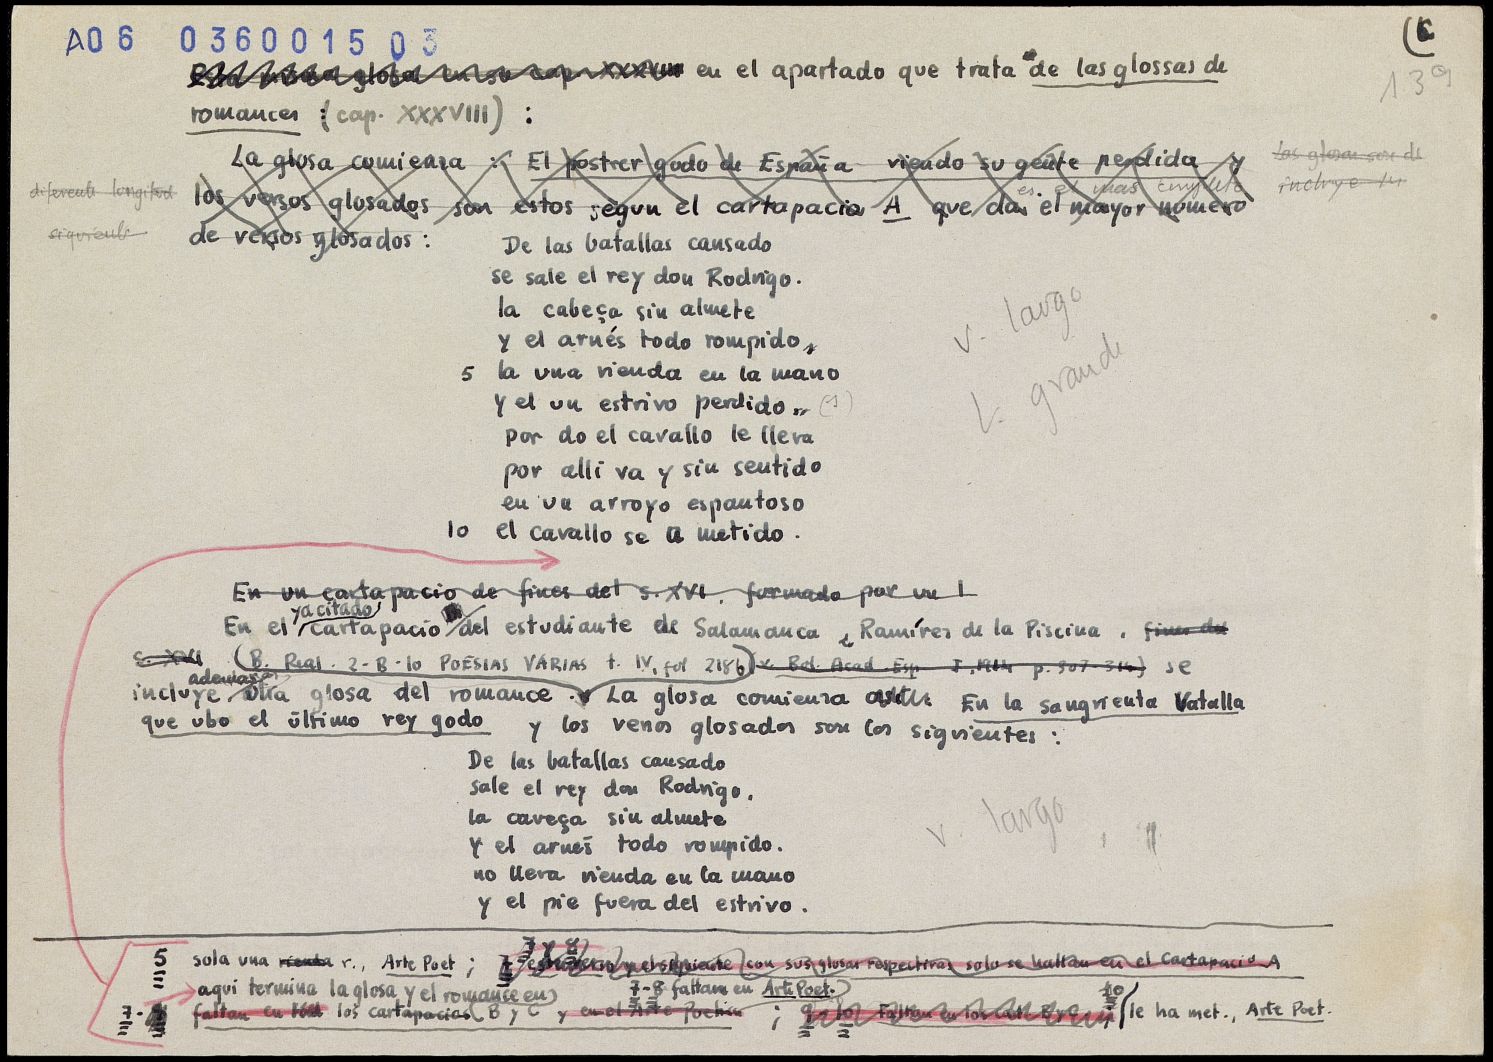 A06 0360015 03
Esta misma glosa en su cap. XXXVIII en el apartado que trata de las glossas de
romances (cap. XXXVIII) :
La glosa comienza : El postrer godo de España viendo su gente perdida y
los versos glosados son estos segun el cartapacio A que da el mayor número
es el mas completo
de versos glosados :
diferente longitud
siguiente
Las glosas son de
incluye
139
De las batallas causado
se sale el rey don Rodrigo.
la cabeça sin almete
y el arnés todo rompido,
5 la una rienda en la mano
y el un estrivo perdido (1)
por do el cavallo le lleva
por alli va y sin sentido
en un arroyo espantoso
10 el cavallo se a metido.
v. largo
l. grande
En un cartapacio de fines del s. XVI, formado por un
ya citado
En el cartapacio del estudiante de Salamanca, Ramírez de la Piscina, fines del
s. XVI (B. Real. 2-B-10 POESIAS VARIAS t. IV, fol 218b) v. Bol. Acad. Esp. I, 1914 p. 307-316) se
además
incluye otra glosa del romance. La glosa comienza En la sangrienta Vatalla
que ubo el último rey godo y los versos glosados son los siguientes :
De las batallas causado
sale el rey don Rodrigo,
la caveça sin almete
y el arnés todo rompido.
no lleva rienda en la mano
y el pie fuera del estrivo.
v. largo
5 sola una rienda r., Arte Poet ; 7 y el siguiente con sus glosas respectivas solo se hallan en el Cartapacio A
7 y 8
aqui termina la glosa y el romance en 7-8 faltan en Art Poet.
7- faltan en los cartapacios B y C y en el Arte Poetica ; 9 10 Faltan en los cart. B y C 10 le ha met., Arte Poet.